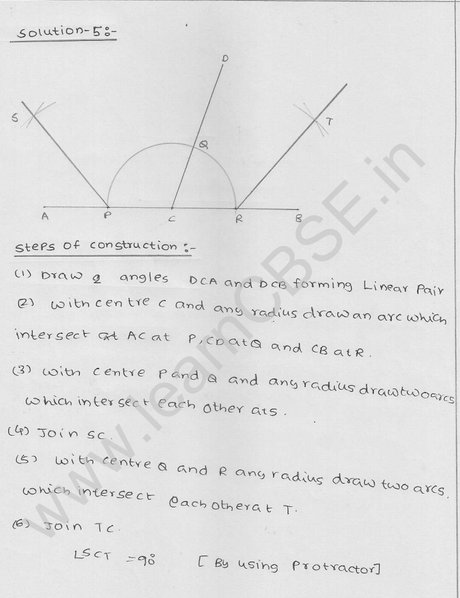 Solution-5:-
D
S
T
Q
A
P
C
R
B
Steps of construction :-
(1) Draw 2 angles DCA and DCB forming Linear Pair
(2) with centre C and any radius draw an arc which
intersect at AC at P, CD at Q and CB at R.
(3) with centre P and Q and any radius draw two arcs
which intersect each other at S.
(4) Join SC.
(5) with centre Q and R any radius draw two arcs.
which intersect each other at T.
(6) Join TC.
∠SCT = 90° [By using Protractor]
www.learnCBSE.in